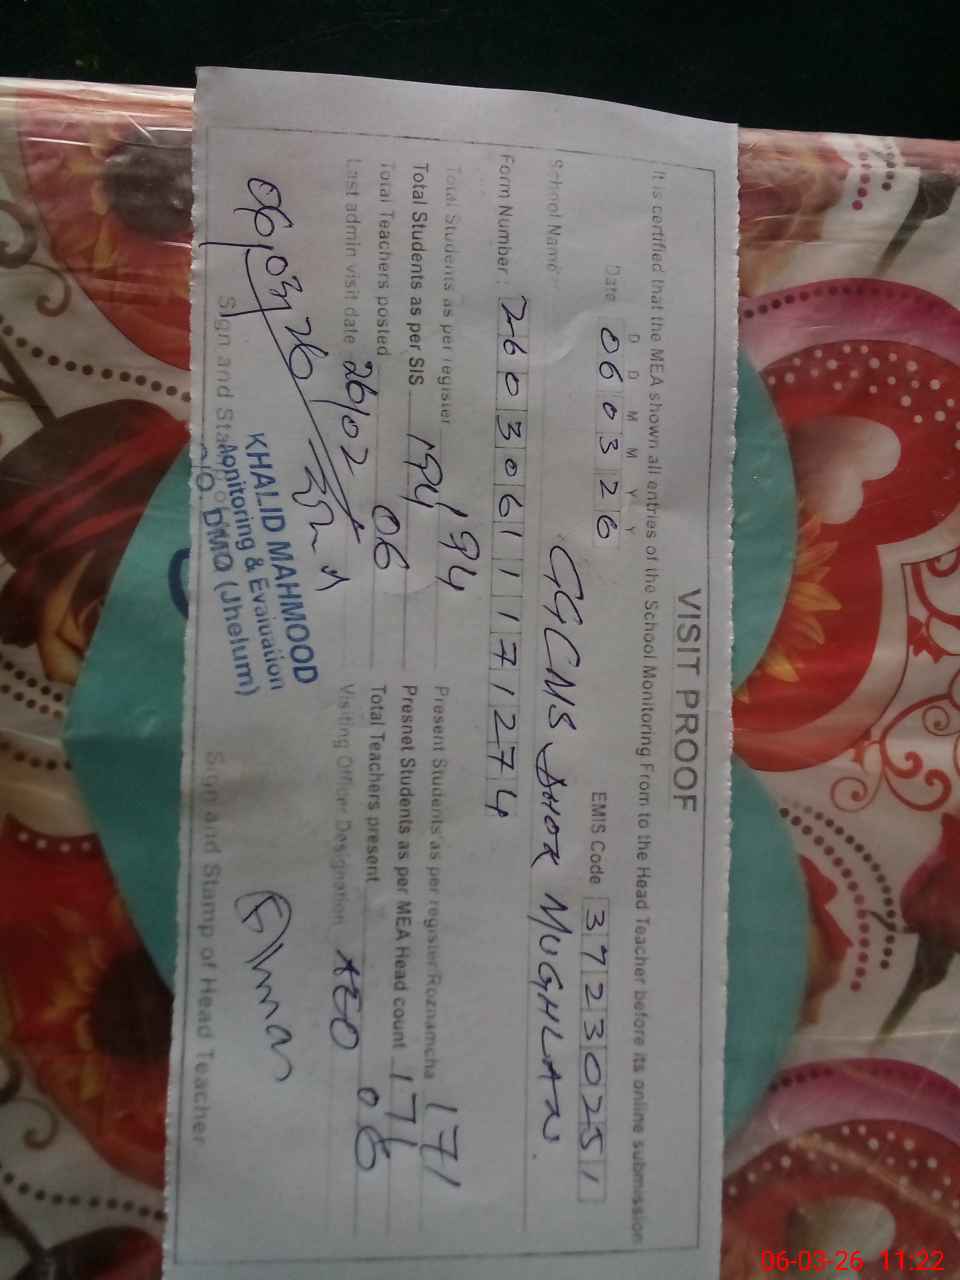 VISIT PROOF
It is certified that the MEA shown all entries of the School Monitoring From to the Head Teacher before its online submission
D D M M Y Y
Date 060326 EMIS Code 37230251
School Name GGCMS DHOK MUGHLAN.
Form Number : 26030611171274
Total Students as per register 194 Present Students as per register Roznamcha 171
Total Students as per SIS 194 Presnet Students as per MEA Head count 171
Total Teachers posted 06 Total Teachers present 06
Last admin visit date 26/02 Visiting Officer Designation AEO
06/03/26
Sign and Stamp of MEA Sign and Stamp of Head Teacher
KHALID MAHMOOD
Monitoring & Evaluation
O/O. DMO (Jhelum)
06-03-26 11:22